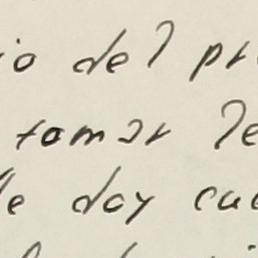 io del pr
tomar le
le doy cu